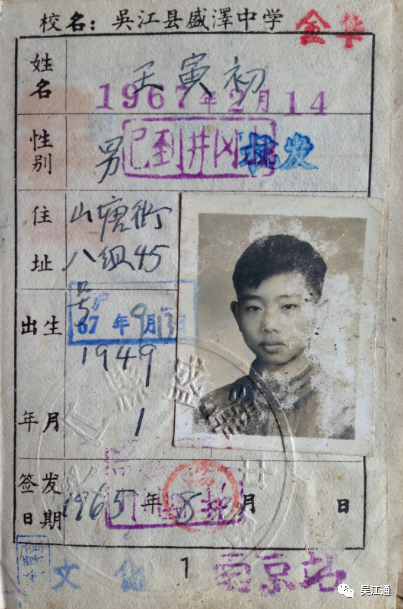 校名：吳江县盛澤中学
金华
姓名 王寅初
1967年2月14
性别 男
已到井冈
批发
住址 山塘街
八组45
号
67年9月13
出生年月 1949
1
签发日期 1965年8月 日
文化
1
南京站
吴江通